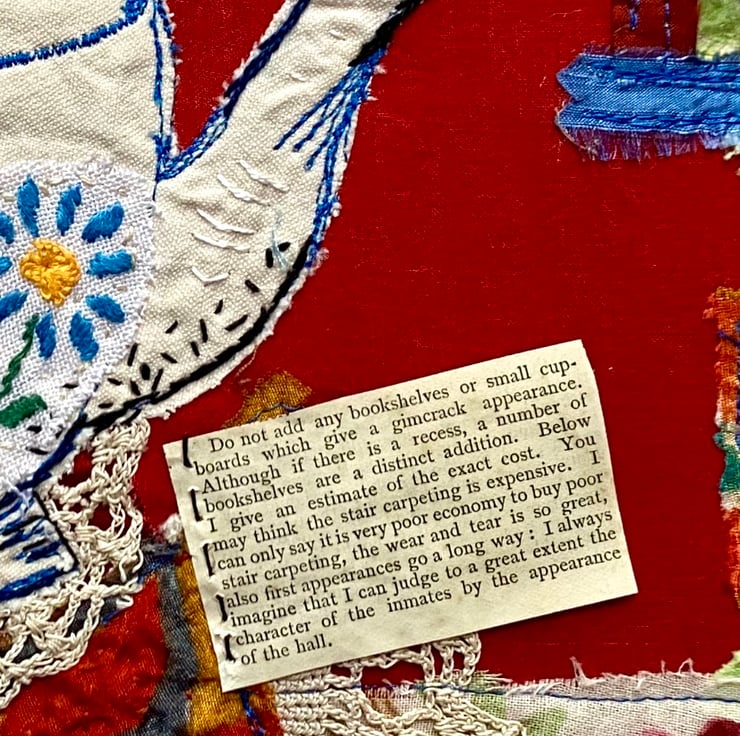 Do not add any bookshelves or small cup-
boards which give a gimcrack appearance.
Although if there is a recess, a number of
bookshelves are a distinct addition. Below
I give an estimate of the exact cost. You
may think the stair carpeting is expensive. I
can only say it is very poor economy to buy poor
stair carpeting, the wear and tear is so great,
also first appearances go a long way: I always
imagine that I can judge to a great extent the
character of the inmates by the appearance
of the hall.